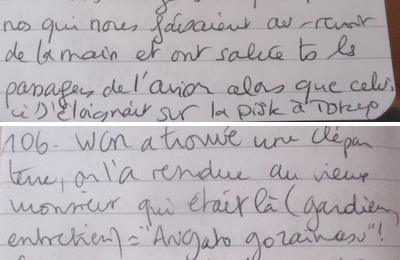 nos qui nous faisaient au-revoir
de la main et ont salué ts ls
passagers de l'avion alors que celui
ci s'éloignait sur la pisk à Tokyo
106. Wcn a trouvé une clé par
terre, on l'a rendue au vieux
monsieur qui était là (gardien,
entretien) = "Arigato gozaimasu"!